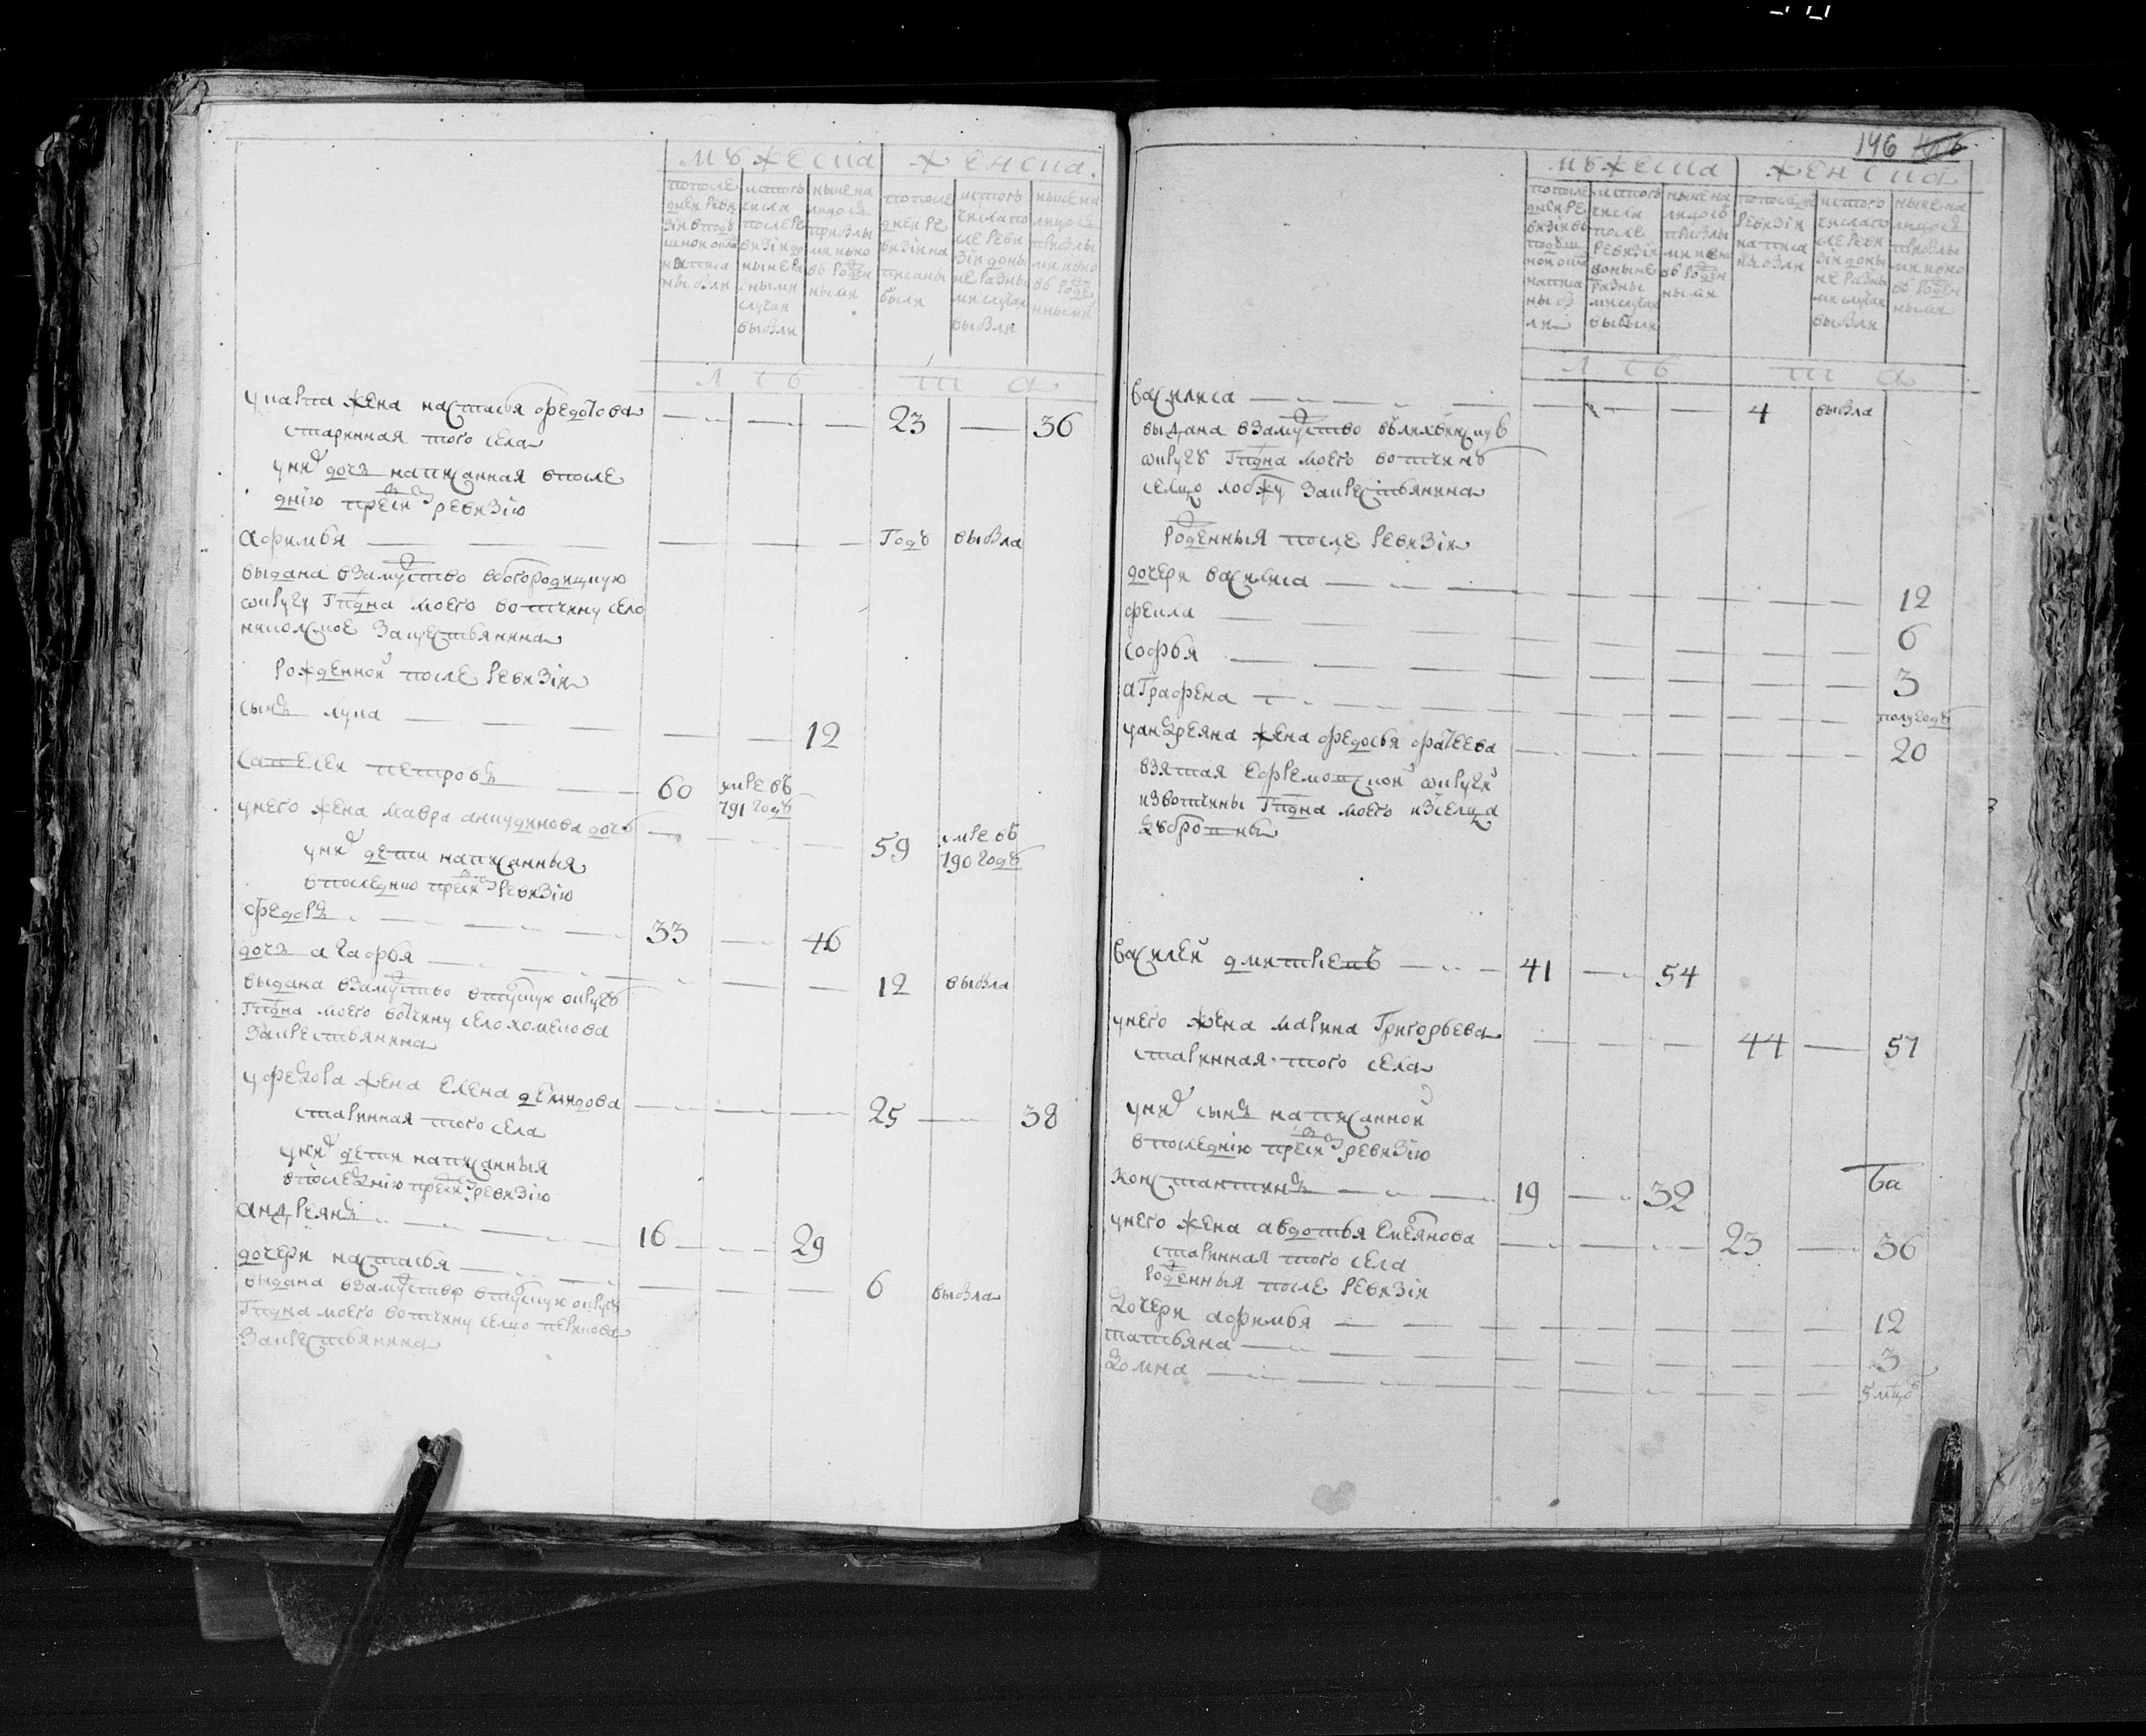 мужеска женска.
по последней ревизии в подушной оклад написаны были
ис того числа после ревизи до ныне разными случаи выбыли
ныне на лицо с прибылыми и вновь рожденными
по последней ревизии написаны были
ис того числа после ревизии доныне разными случаи выбыли
ныне на лицо с прибылыми и вновь рожденными
лѣ та
у карпа жена настасья федотова 23 36
старинная того села
у них дочь написанная в после
днюю пред сим ревизию
афимья году выбыла
выдана в замужство в богородицкую
округу гпдна моего вотчину село
николское за крестьянина
рожденной после ревизии
сынъ лука 12
савелей петровъ 60 умре въ 791 году
у него жена мавра анкудинова дочь 59 умре въ 790 году
у них дети написанныя
в последнюю пред сим ревизию
федоръ 33 46
дочь агафья 12 выбыла
выдана в замужство в тулскую округу
гпдна моего вотчину село хомяково
за крестьянина
у федора жена елена демидова 25 38
старинная того села
у них дети написанныя
в последнюю пред сим ревизию
андреянъ 16 29
дочери настасья 6 выбыла
выдана в замужство в тулскую округу
гпдна моего вотчину селцо
за крестьянина
146
мужеска женска
по последней ревизии в подушной оклад написаны были
ис того числа после ревизии доныне разными случаи выбыли
ныне на лицо с прибылыми и вновь рожденными
по последней ревизии написаны были
ис того числа после ревизии доныне разными случаи выбыли
ныне на лицо с прибылыми и вновь рожденными
лѣ та
василиса 4 выбыла
выдана в замужство
округу гпдна моего вотчину
селцо за крестьянина
рожденныя после ревизии
дочери василиса 12
фекла 6
софья 3
аграфена полугоду
у андреяна жена федосья фатеева 20
взятая ефремовской округи
из вотчины гпдна моего из селца
дубровки
василей дмитриевъ 41 54
у него жена марина григорьева 44 57
старинная того села
у них сынъ написанной
в последнюю пред сим ревизию
константинъ 19 32
у него жена авдотья емеянова 23 36
старинная того села
рожденныя после ревизии
дочери афимья 12
татьяна 3
домна 5 мцов